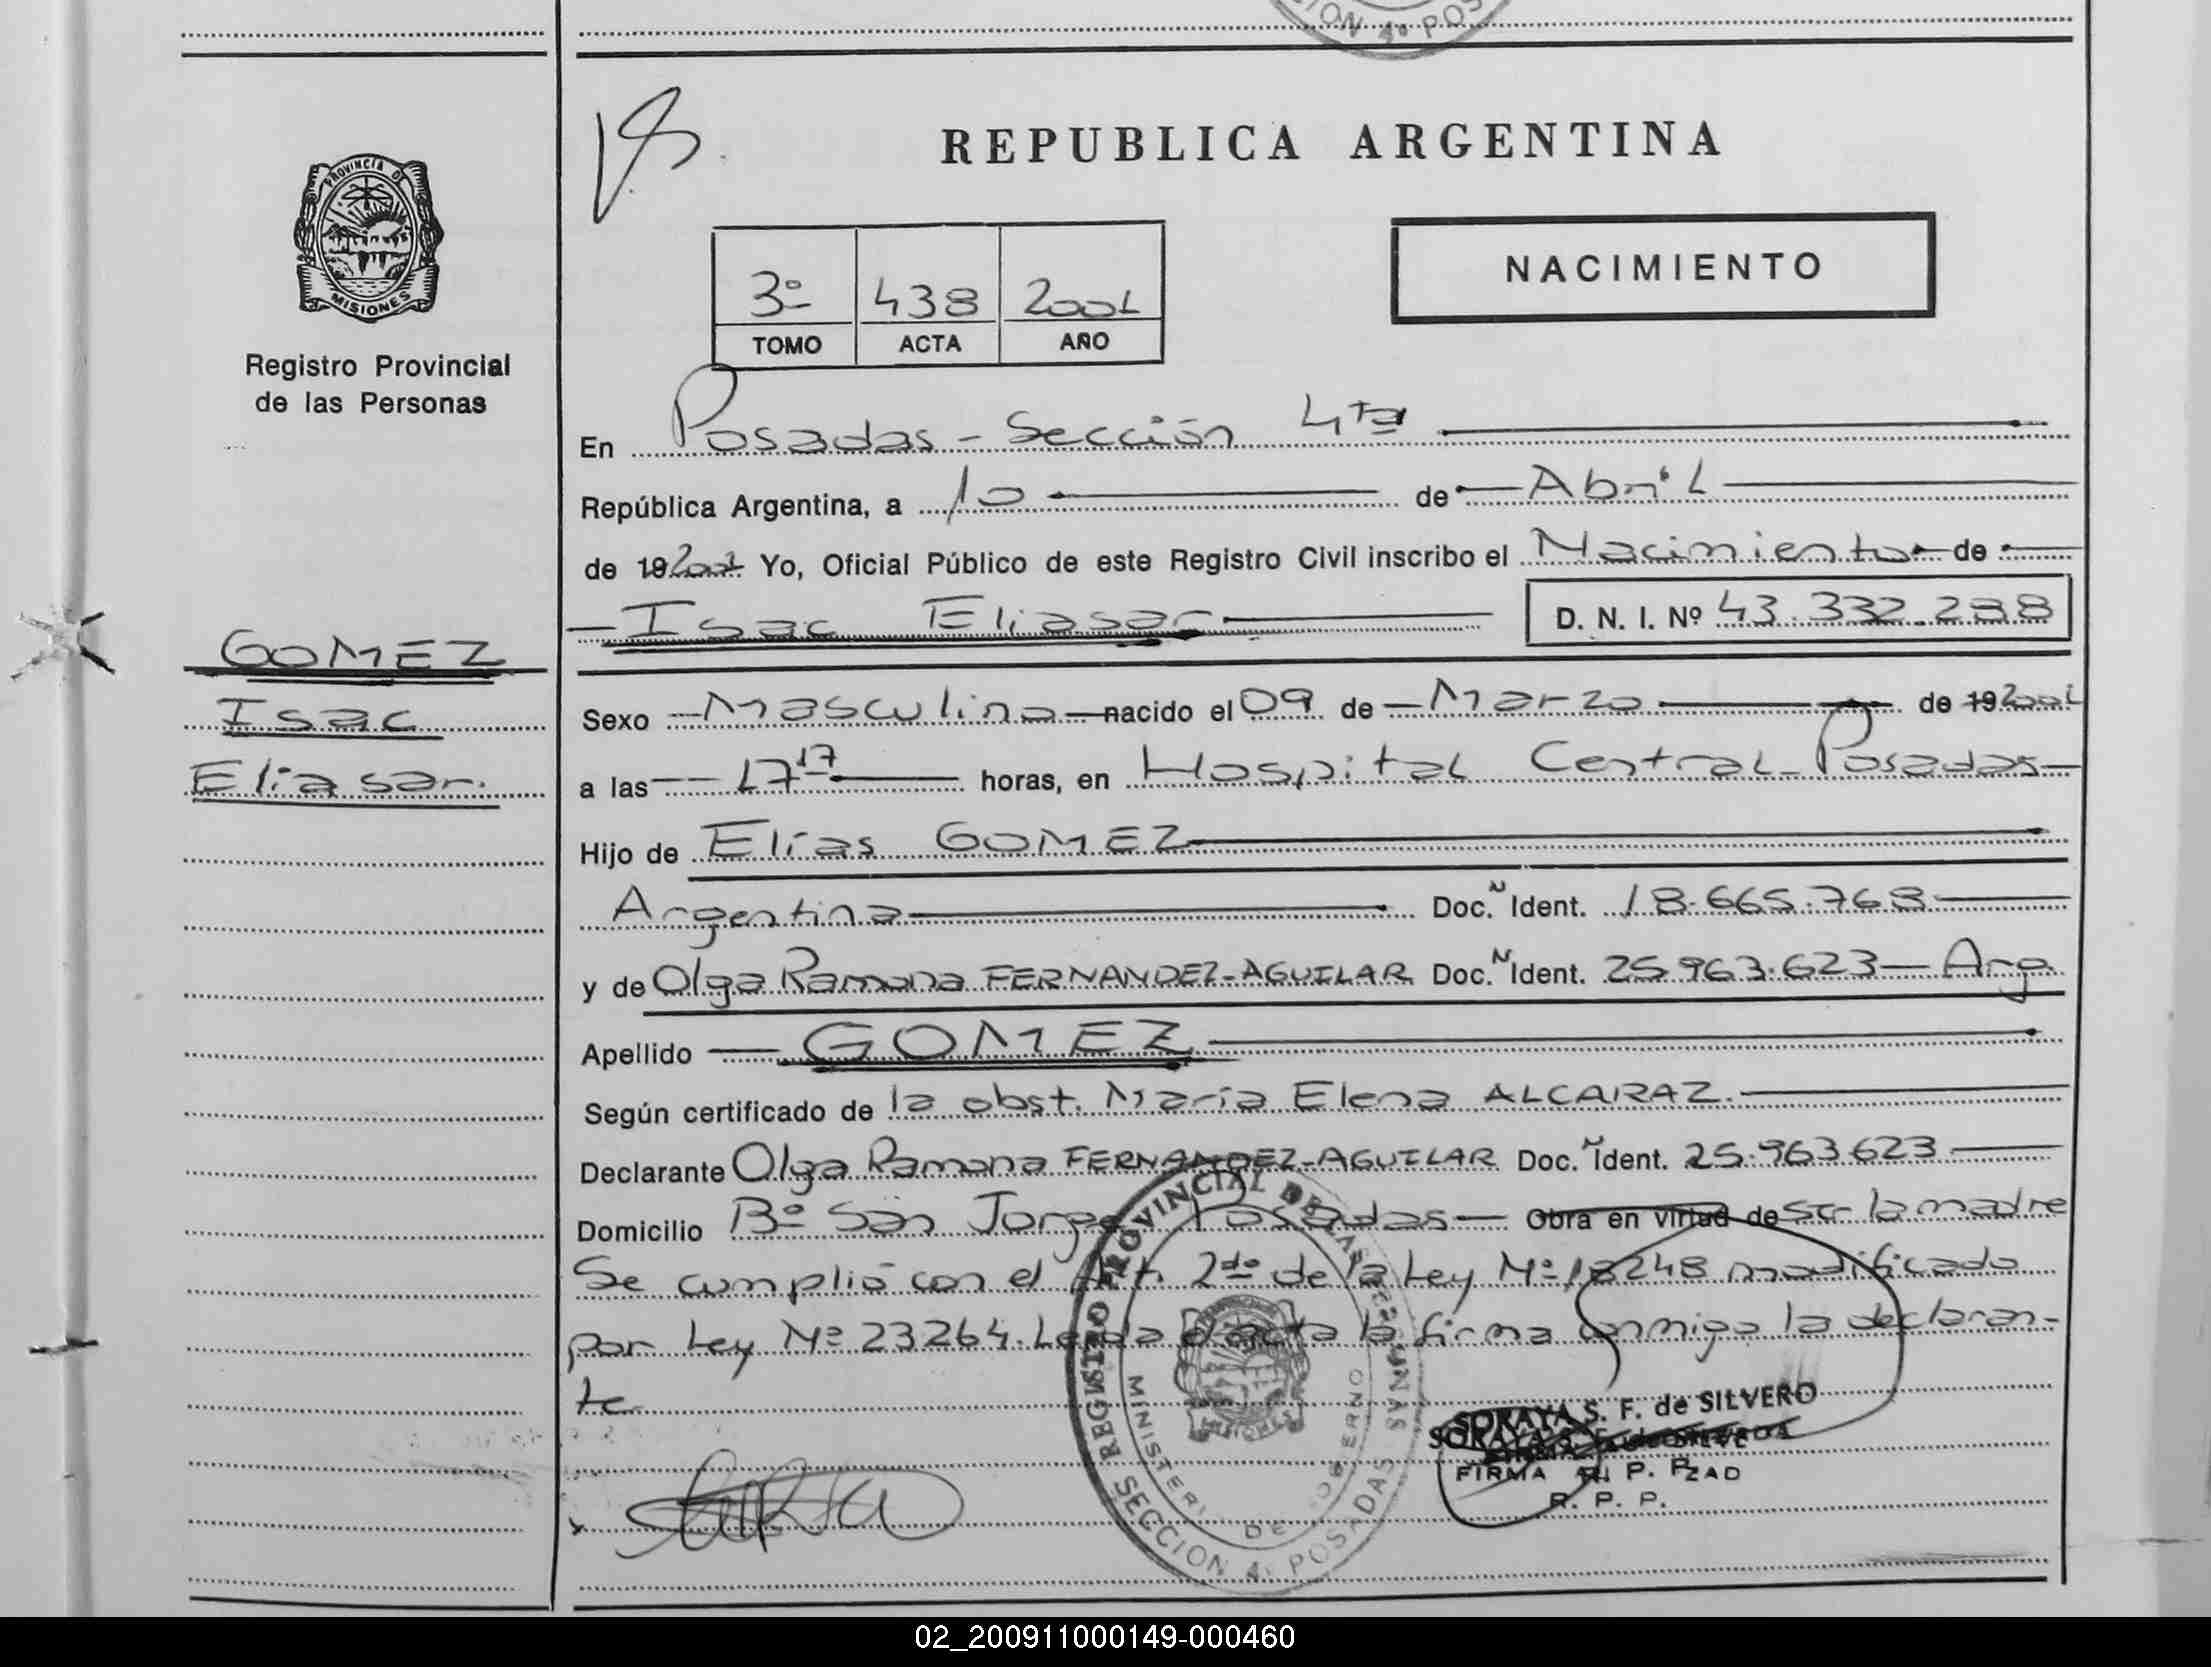 CION 4º POS
REPUBLICA ARGENTINA
PROVINCIA DE
MISIONES
Registro Provincial
de las Personas
3º 438 2001
TOMO ACTA AÑO
NACIMIENTO
En Posadas - Sección 4ta
República Argentina, a 10 de Abril
de 19 2001 Yo, Oficial Público de este Registro Civil inscribo el Nacimiento de
Isac Eliasar D. N. I. Nº 43.332.288
GOMEZ
Isac
Eliasar.
Sexo Masculino nacido el 09 de Marzo de 19 2001
a las 17 17 horas, en Hospital Central - Posadas
Hijo de Elías GOMEZ
Argentina Doc. N Ident. 18.665.768
y de Olga Ramona FERNANDEZ-AGUILAR Doc. N Ident. 25.963.623 - Arg.
Apellido GOMEZ
Según certificado de la obst. María Elena ALCARAZ.
Declarante Olga Ramona FERNANDEZ-AGUILAR Doc. N Ident. 25.963.623
Domicilio Bº San Jorge Posadas - Obra en virtud de ser la madre
Se cumplió con el Art. 2do de la Ley Nº 18248 modificado
por Ley Nº 23264. Leída el acta la firma conmigo la declaran-
te
REGISTRO PROVINCIAL DE LAS PERSONAS
MINISTERIO DE GOBIERNO
SECCION 4º POSADAS
SORAYA S. F. de SILVERO
R. P. P.
02_200911000149-000460